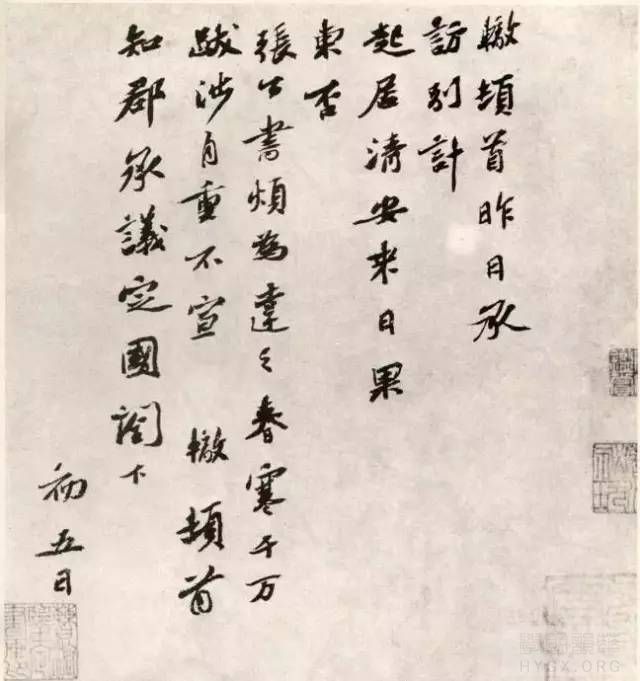 轍頓首昨日承
訪别計
起居清安来日果
東否
張公書煩為達之春寒千万
跋涉自重不宣 轍頓首
知郡承議定國閣下
初五日
HYGX.ORG